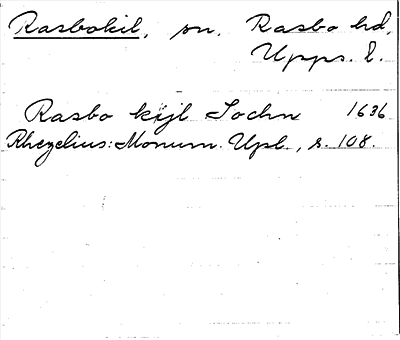 Rasbokil, sn. Rasbo hd,
Upps. l.
Rasbo kijl Sochn 1636
Rhezelius: Monum. Upl., s. 108.